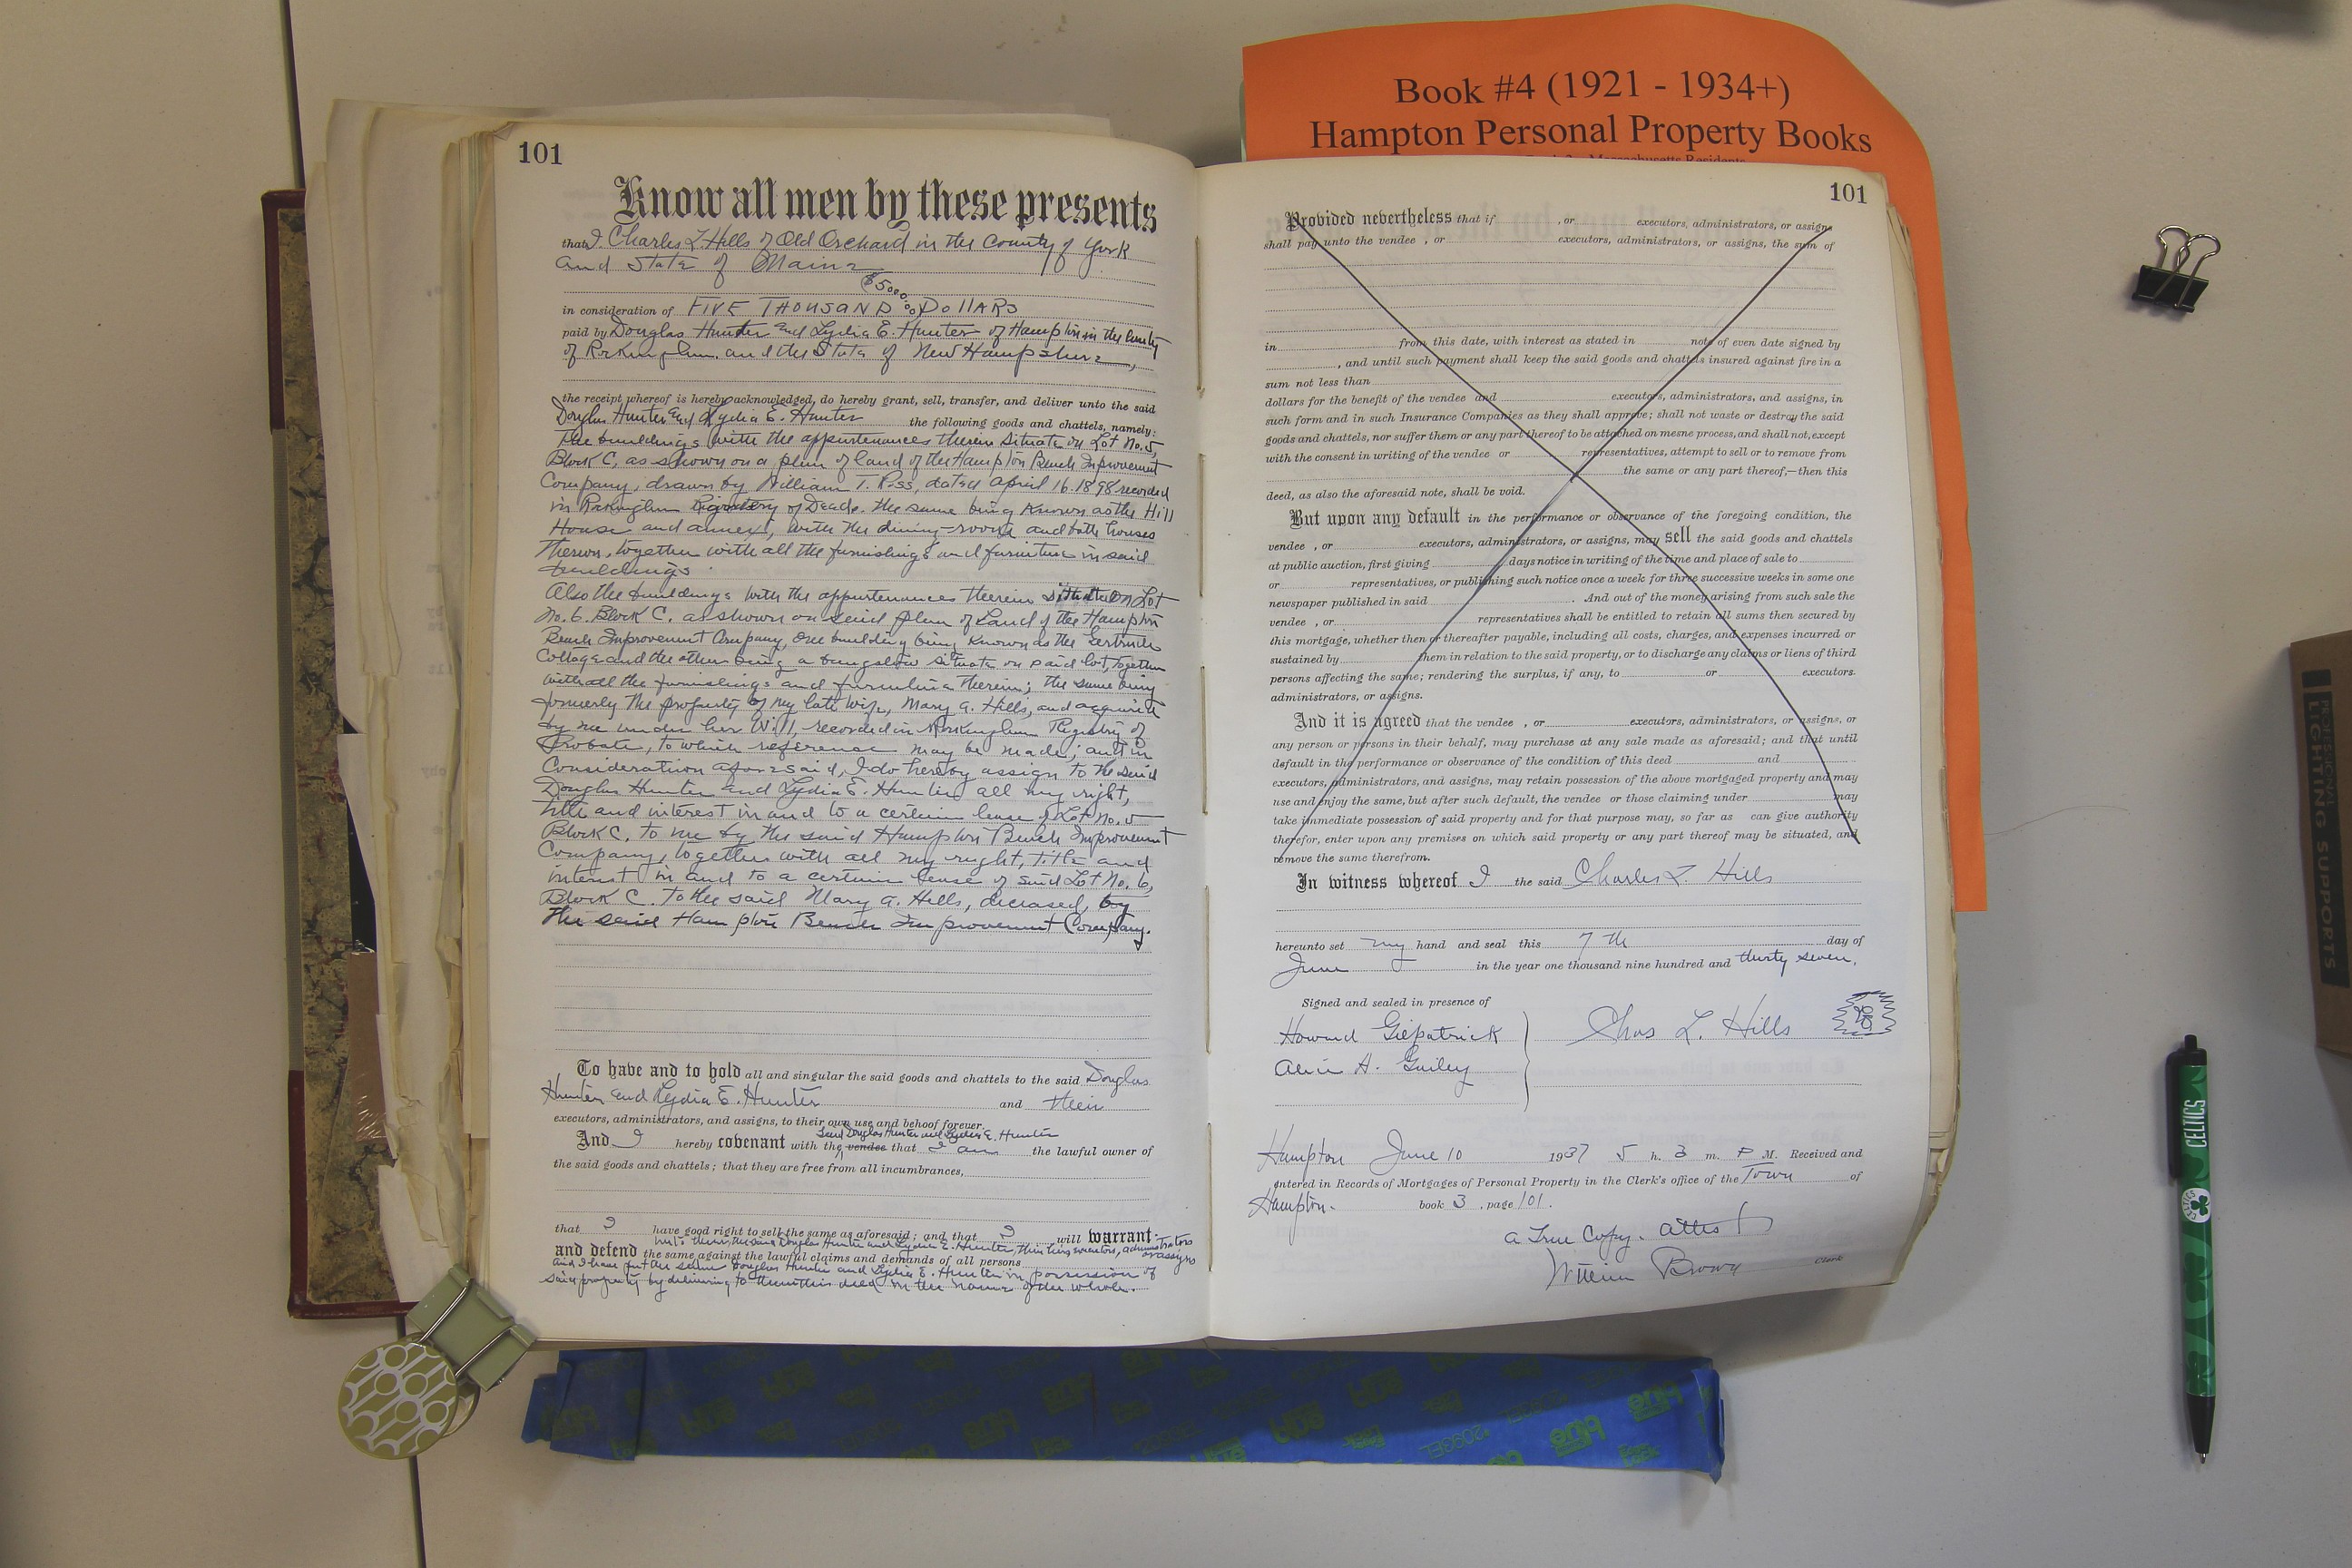 Book #4 (1921 - 1934+)
Hampton Personal Property Books
Massachusetts Residents
101
Know all men by these presents
that I Charles L. Hills of Old Orchard in the County of York
and State of Maine
$5000.00
in consideration of FIVE THOUSAND DOLLARS
paid by Douglas Hunter and Lydia E. Hunter of Hampton in the County
of Rockingham and the State of New Hampshire,
the receipt whereof is hereby acknowledged, do hereby grant, sell, transfer, and deliver unto the said
Douglas Hunter and Lydia E. Hunter the following goods and chattels, namely:
The buildings with the appurtenances therein situate on Lot No. 5,
Block C, as shown on a plan of land of the Hampton Beach Improvement
Company, drawn by William T. Ross, dated April 16. 1898 recorded
in Rockingham Registry of Deeds. the same being known as the Hill
House and annex, with the dining-room and bath houses
thereon, together with all the furnishings and furniture in said
buildings.
Also the buildings with the appurtenances therein situate on Lot
No. 6. Block C. as shown on said plan of Land of the Hampton
Beach Improvement Company, one building being known as the Gertrude
Cottage and the other being a bungalow situate on said lot, together
with all the furnishings and furniture therein; the same being
formerly the property of my late wife, Mary A. Hills, and acquired
by me under her Will, recorded in Rockingham Registry of
Probate, to which reference may be made; and in
Consideration aforesaid, I do hereby assign to the said
Douglas Hunter and Lydia E. Hunter all my right,
title and interest in and to a certain lease of Lot No. 5
Block C. to me by the said Hampton Beach Improvement
Company, together with all my right, title and
interest in and to a certain lease of said Lot No. 6,
Block C. to the said Mary A. Hills, deceased, by
the said Hampton Beach Improvement Company.
To have and to hold all and singular the said goods and chattels to the said Douglas
Hunter and Lydia E. Hunter and their
executors, administrators, and assigns, to their own use and behoof forever.
said Douglas Hunter and Lydia E. Hunter
And I hereby covenant with the vendee that I am the lawful owner of
the said goods and chattels; that they are free from all incumbrances,
that I have good right to sell the same as aforesaid; and that I will warrant
unto them, the said Douglas Hunter and Lydia E. Hunter, their executors, administrators
or assigns
and defend the same against the lawful claims and demands of all persons
and I have put the said Douglas Hunter and Lydia E. Hunter in possession of
said property by delivering to them this deed in the name of the whole.
101
Provided nevertheless that if , or executors, administrators, or assigns
shall pay unto the vendee , or executors, administrators, or assigns, the sum of
in from this date, with interest as stated in note of even date signed by
, and until such payment shall keep the said goods and chattels insured against fire in a
sum not less than
dollars for the benefit of the vendee and executors, administrators, and assigns, in
such form and in such Insurance Companies as they shall approve; shall not waste or destroy the said
goods and chattels, nor suffer them or any part thereof to be attached on mesne process, and shall not, except
with the consent in writing of the vendee or representatives, attempt to sell or to remove from
the same or any part thereof,—then this
deed, as also the aforesaid note, shall be void.
But upon any default in the performance or observance of the foregoing condition, the
vendee , or executors, administrators, or assigns, may sell the said goods and chattels
at public auction, first giving days notice in writing of the time and place of sale to
or representatives, or publishing such notice once a week for three successive weeks in some one
newspaper published in said . And out of the money arising from such sale the
vendee , or representatives shall be entitled to retain all sums then secured by
this mortgage, whether then or thereafter payable, including all costs, charges, and expenses incurred or
sustained by them in relation to the said property, or to discharge any claims or liens of third
persons affecting the same; rendering the surplus, if any, to or executors.
administrators, or assigns.
And it is agreed that the vendee , or executors, administrators, or assigns, or
any person or persons in their behalf, may purchase at any sale made as aforesaid; and that until
default in the performance or observance of the condition of this deed and
executors, administrators, and assigns, may retain possession of the above mortgaged property and may
use and enjoy the same, but after such default, the vendee or those claiming under may
take immediate possession of said property and for that purpose may, so far as can give authority
therefor, enter upon any premises on which said property or any part thereof may be situated, and
remove the same therefrom.
In witness whereof I the said Charles L. Hills
hereunto set my hand and seal this 7th day of
June in the year one thousand nine hundred and thirty seven.
Signed and sealed in presence of
Howard Gilpatrick
Chas L. Hills
Alice H. Guiley
Hampton June 10 1937 5 h. 3 m. P M. Received and
entered in Records of Mortgages of Personal Property in the Clerk's office of the Town of
Hampton. book 3 , page 101.
A True Copy. Attest
William Brown Clerk
PROFESSIONAL
LIGHTING SUPPORTS
CELTICS
CELTICS
blue